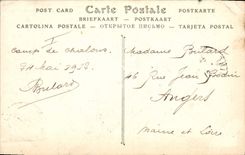 POST CARD Carte Postale POSTKARTE
BRIEFKAART POSTKORT
CARTOLINA POSTALE ОТКРЫТОЕ ПИСЬМО TARJETA POSTAL
Camp de chalons
24 Mai 1933
Madame
46 Rue Jean Bodin
Angers
Maine et Loire